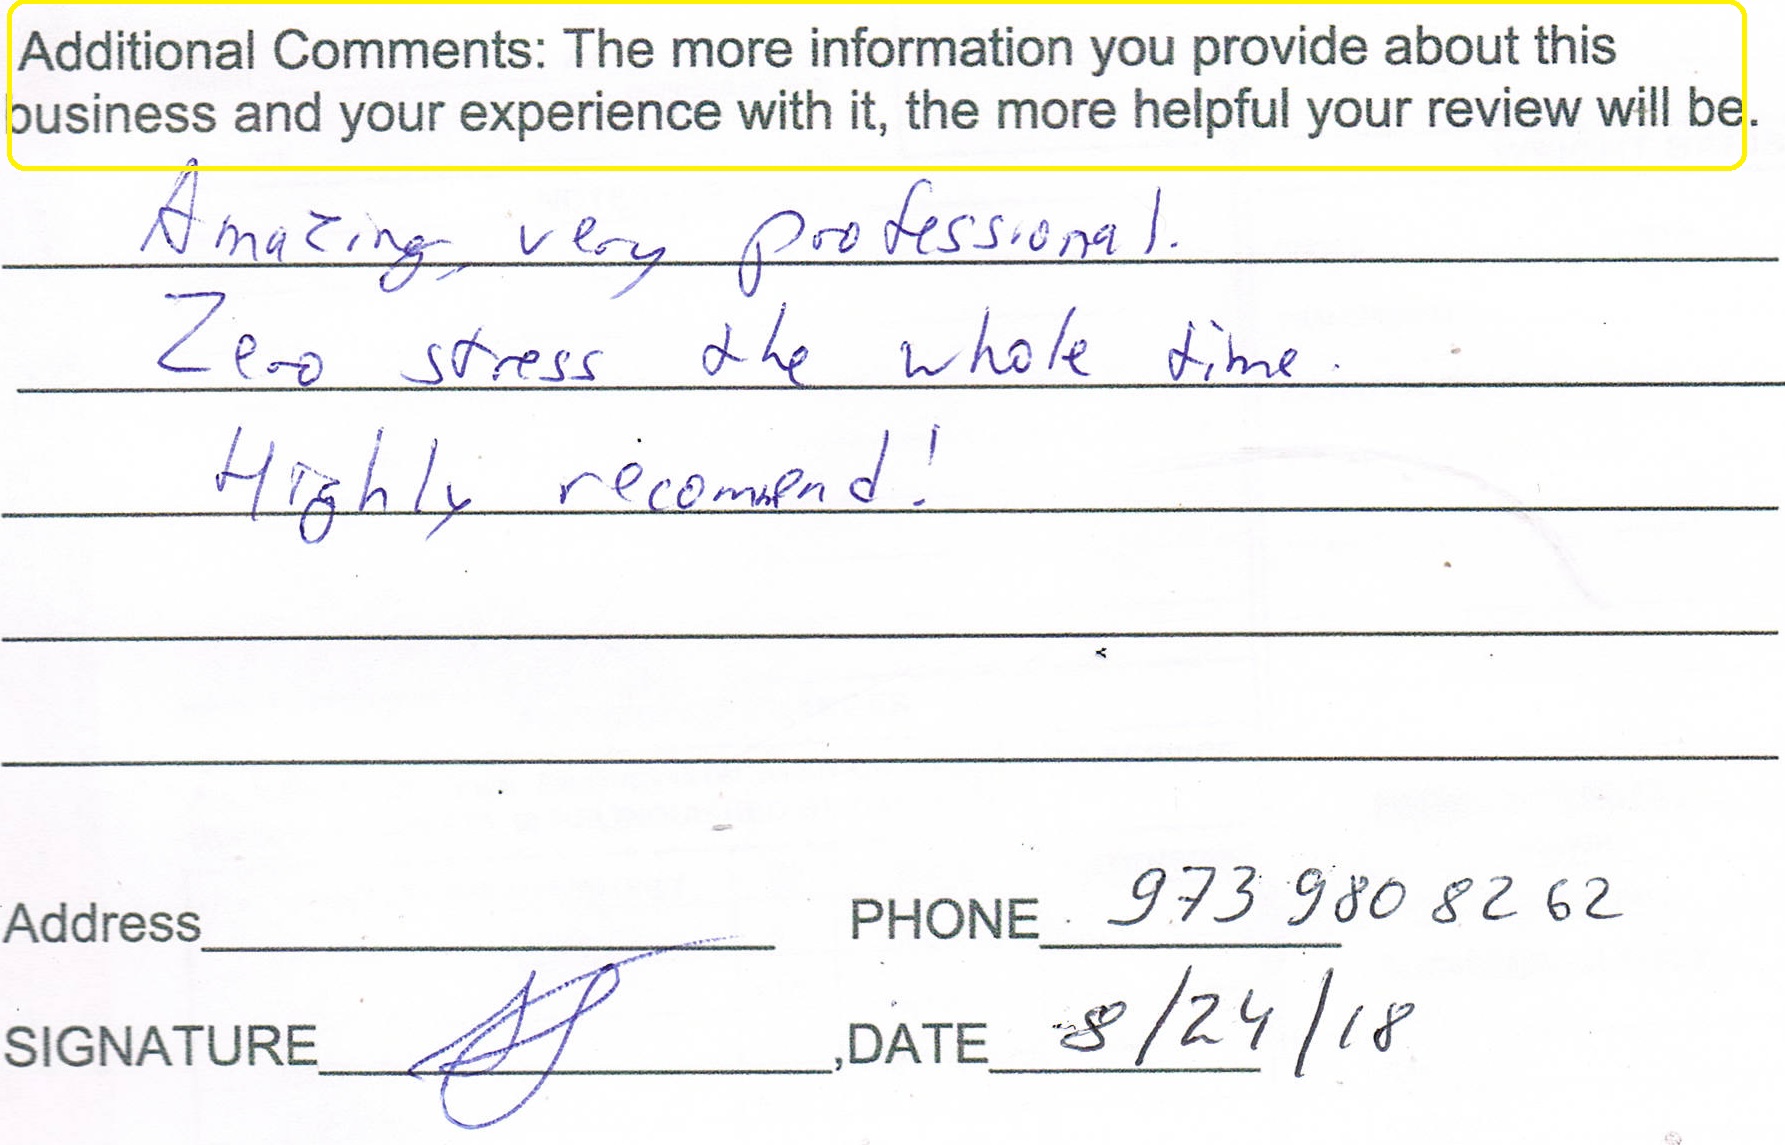 Additional Comments: The more information you provide about this
business and your experience with it, the more helpful your review will be.
Amazing, very professional.
Zero stress the whole time.
Highly recommend!
Address
PHONE 973 980 8262
SIGNATURE
,DATE 8/24/18